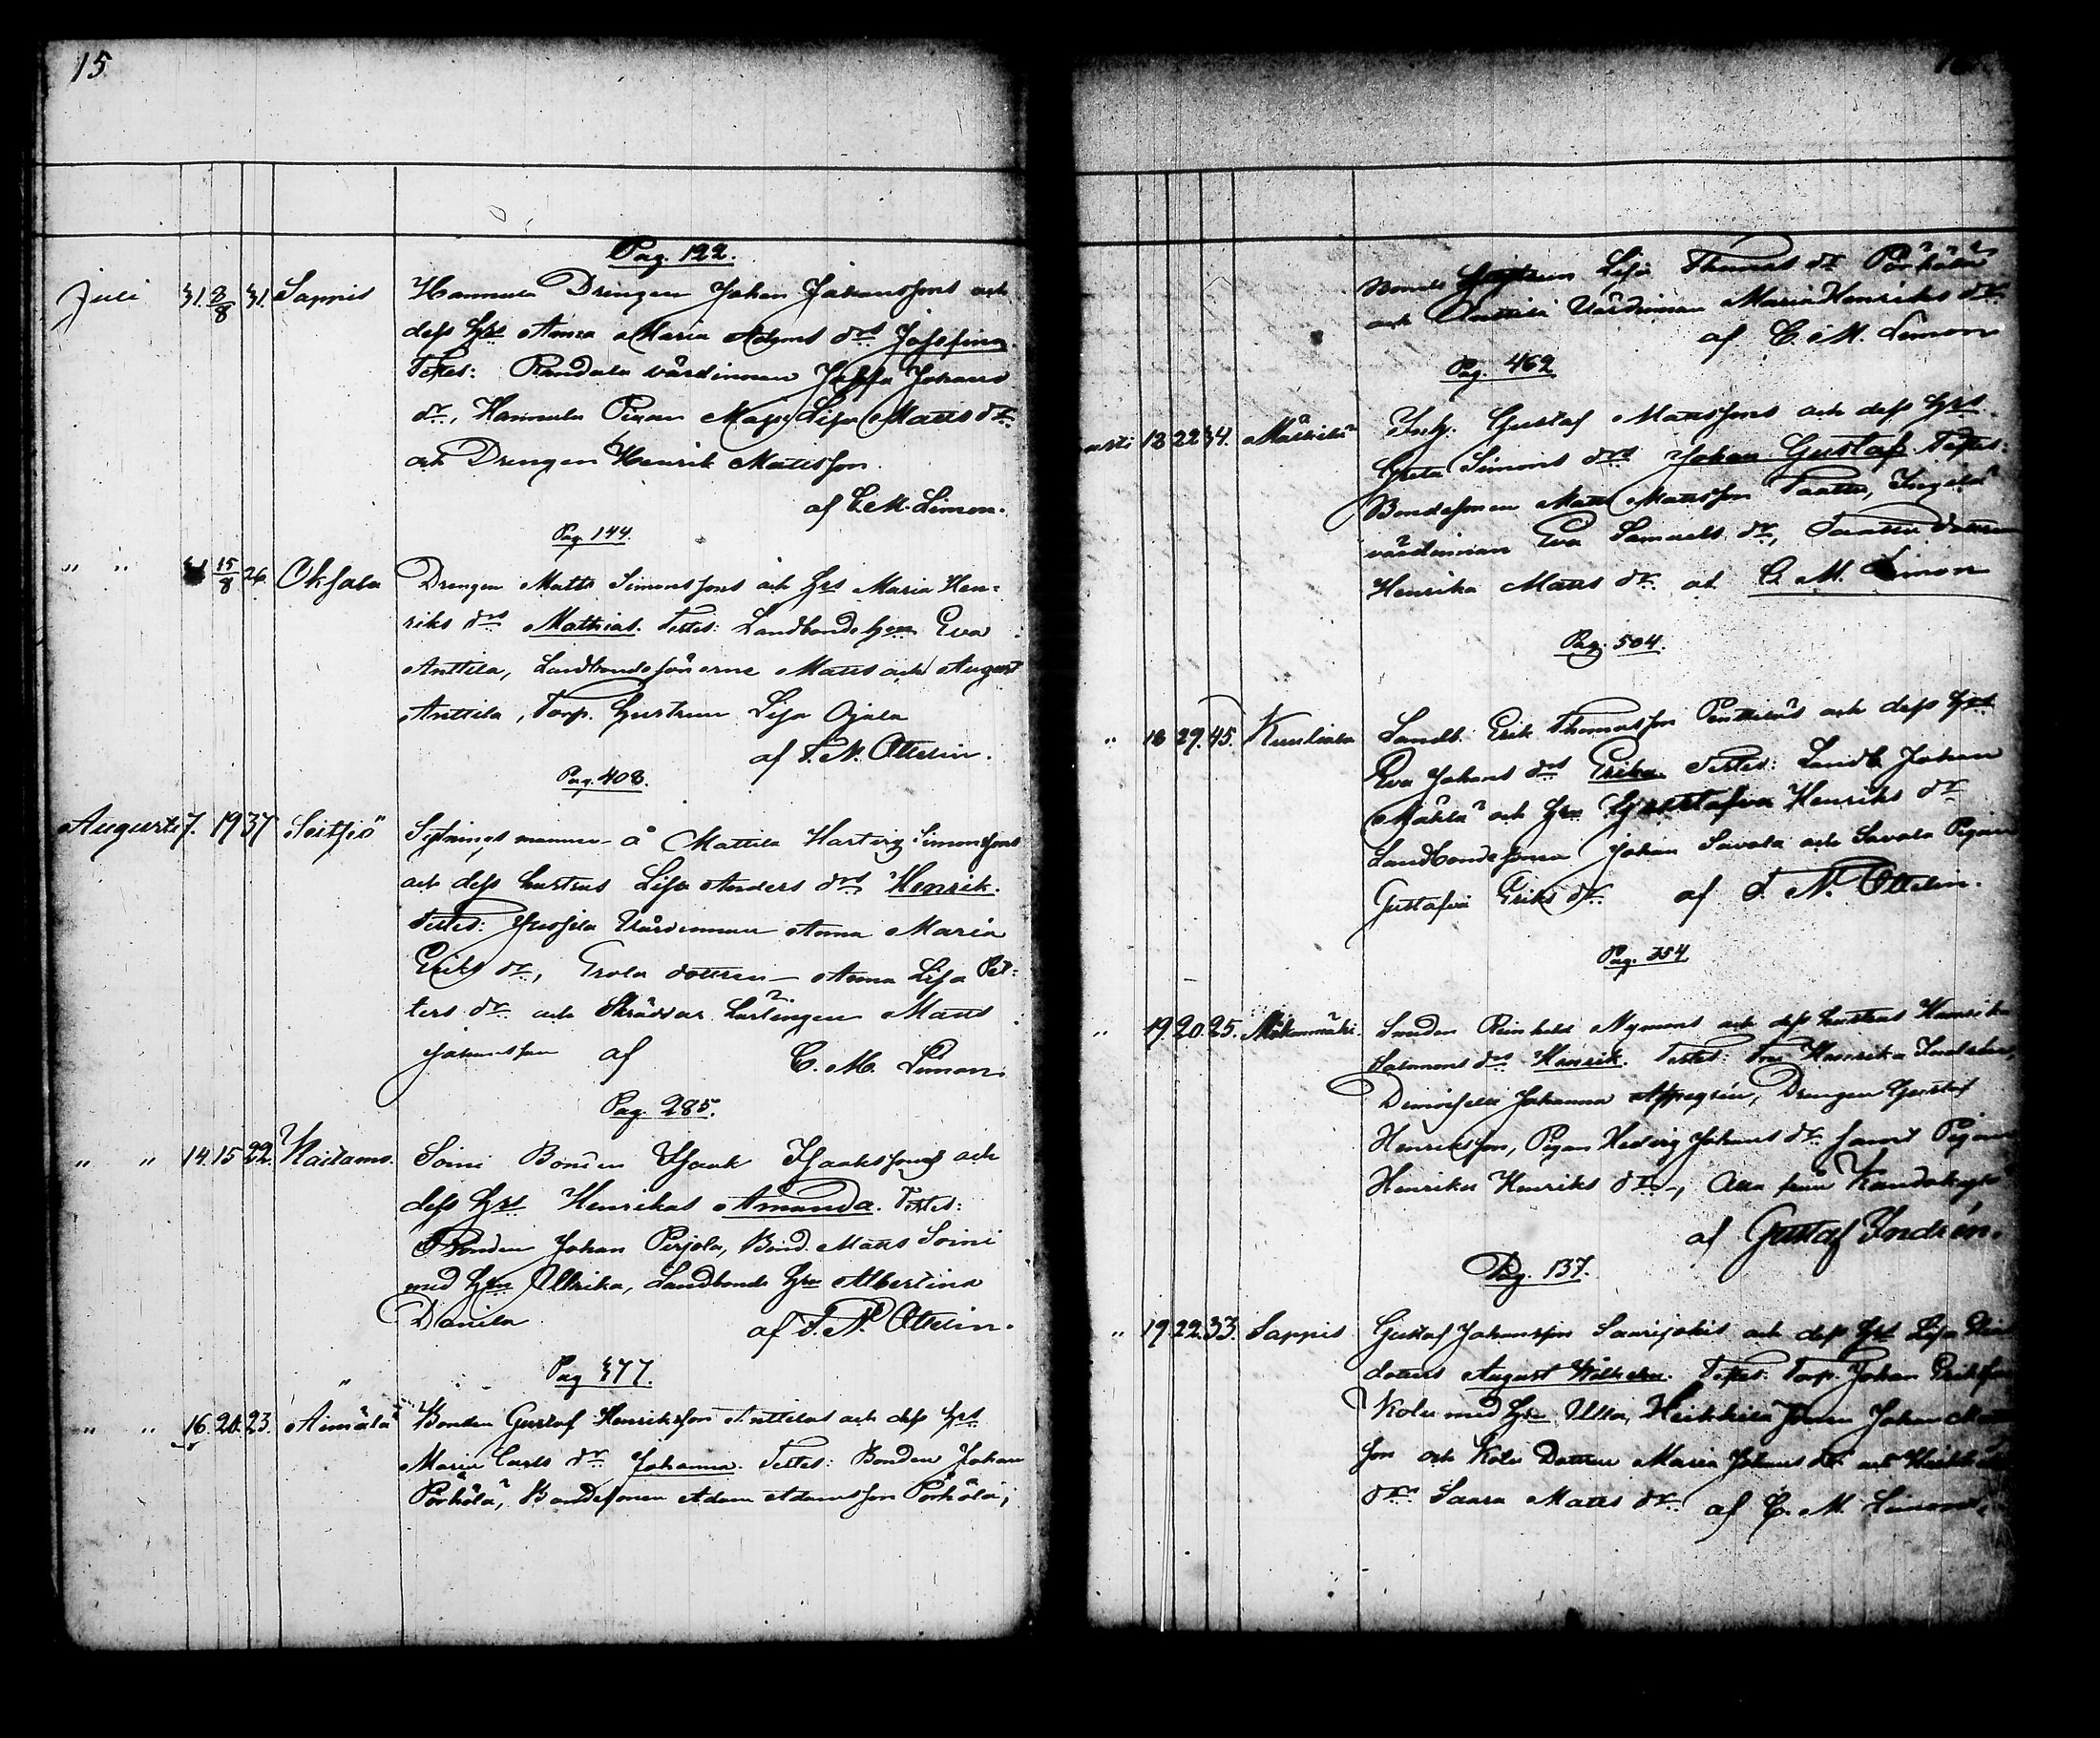 15
Pag. 122.
Juli 31. 8/8 31. Sappis Hannula Drengen Johan Johanssons och
dess hru Anna Maria Adams drs Josefina
Testes: Randala värdinnan Johans
dr, Hannula Pigan Maja Lisa Matts dr
och Drengen Henrik Mattsson.
af C. M. Limon.
Pag. 144.
" " 15/8 26. Oksala Drengen Matts Simonssons och hrs Maria Hen-
riks drs Mathias. Testes: Landbonde hrn Eva
Anttila, Landbondesönerne Matts och August
Anttila, Torp. hustrun Lisa Ojala
af F. N. Ottelin.
Pag. 408.
Augusti 7. 19 37 Seitsiö Sytningsmannen å Mattila Hartvig Simonssons
och dess hustrus Lisa Anders drs Henrik.
Testes: Jussila Värdinnan Anna Maria
Eriks dr, Erola dottren Anna Lisa Pet-
ters dr och Skräddar Lärlingen Matts
Johansson af C. M. Limon.
Pag. 285.
" " 14. 15 22. Kaitamo. Soini Bonden Isaak Isakssons och
dess hrs Henrikas Amanda. Testes:
Bonden Johan Perjola, Bond. Matts Soini
med hrn Ullrika, Landbonde hrn Albertina
Danila af F. N. Ottelin.
Pag 377.
" " 16. 20. 23. Aimälä Bonden Gustaf Henriksson Anttilas och dess hrs
Maria Carls dr Johanna. Testes: Bonden Johan
Pörhölä, Bondesonen Adam Adamsson Pörhölä,
Bonde hustrun Lisa Thomas dr Pörhölä
och Anttila Värdinnan Maria Henriks dr
af C. M. Limon
Pag. 462
usti 18 22 34. Inh. Gustaf Mattssons och dess hrs
Greta Simons drs Johan Gustaf. Testes:
Bondesonen Matts Mattsson Taatta, Ingilä
värdinnan Eva Samuels dr, Taatta dottren
Henrika Matts dr. af C. M. Limon
Pag. 504.
" 18 29. 45. Kuuliala Landb. Erik Thomasson Penttiläs och dess hrs
Eva Johans drs Erika. Testes: Landb. Johan
Mäklä och hrn Gustafva Henriks dr
Landbondesonen Johan Savola och Savola Pigan
Gustafva Eriks dr. af F. N. Ottelin.
Pag. 354
" 19. 20. 25. Smeden Reinhold Nymans och dess hustrus Henrika
Salomons drs Henrik. Testes: Fru Henrika Indrén,
Demoiselle Johanna Appegrén, Drengen Gustaf
Henriksson, Pigan Hedvig Johans dr samt Pigan
Henrika Henriks dr, alla från
af Gustaf Indrén.
Pag. 137.
" 19 22. 33. Sappis Gustaf Johansson Saarijokis och dess hrs Lisa
dotters August Wilhelm. Testes: Torp. Johan Eriksson
Kolu med hrn Ulla, Heikkilä sonen Johan Matts
son och Kolu Dottren Maria Johans dr och Heikkilä
drn Saara Matts dr. af C. M. Limon.